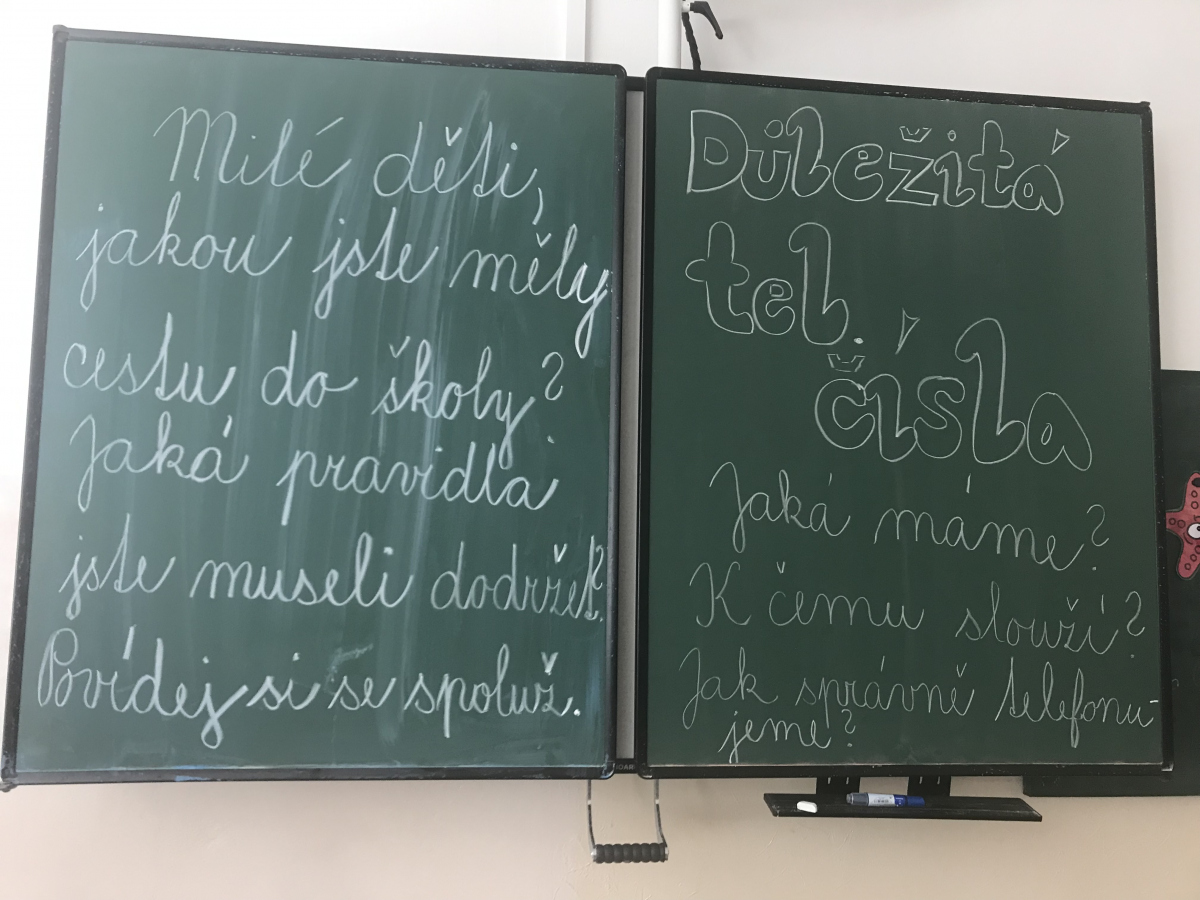 Milé děti,
jakou jste měly
cestu do školy?
Jaká pravidla
jste museli dodržet?
Povídej si se spoluž.
Důležitá
tel.
čísla
Jaká máme?
K čemu slouží?
Jak správně telefonu-
jeme?